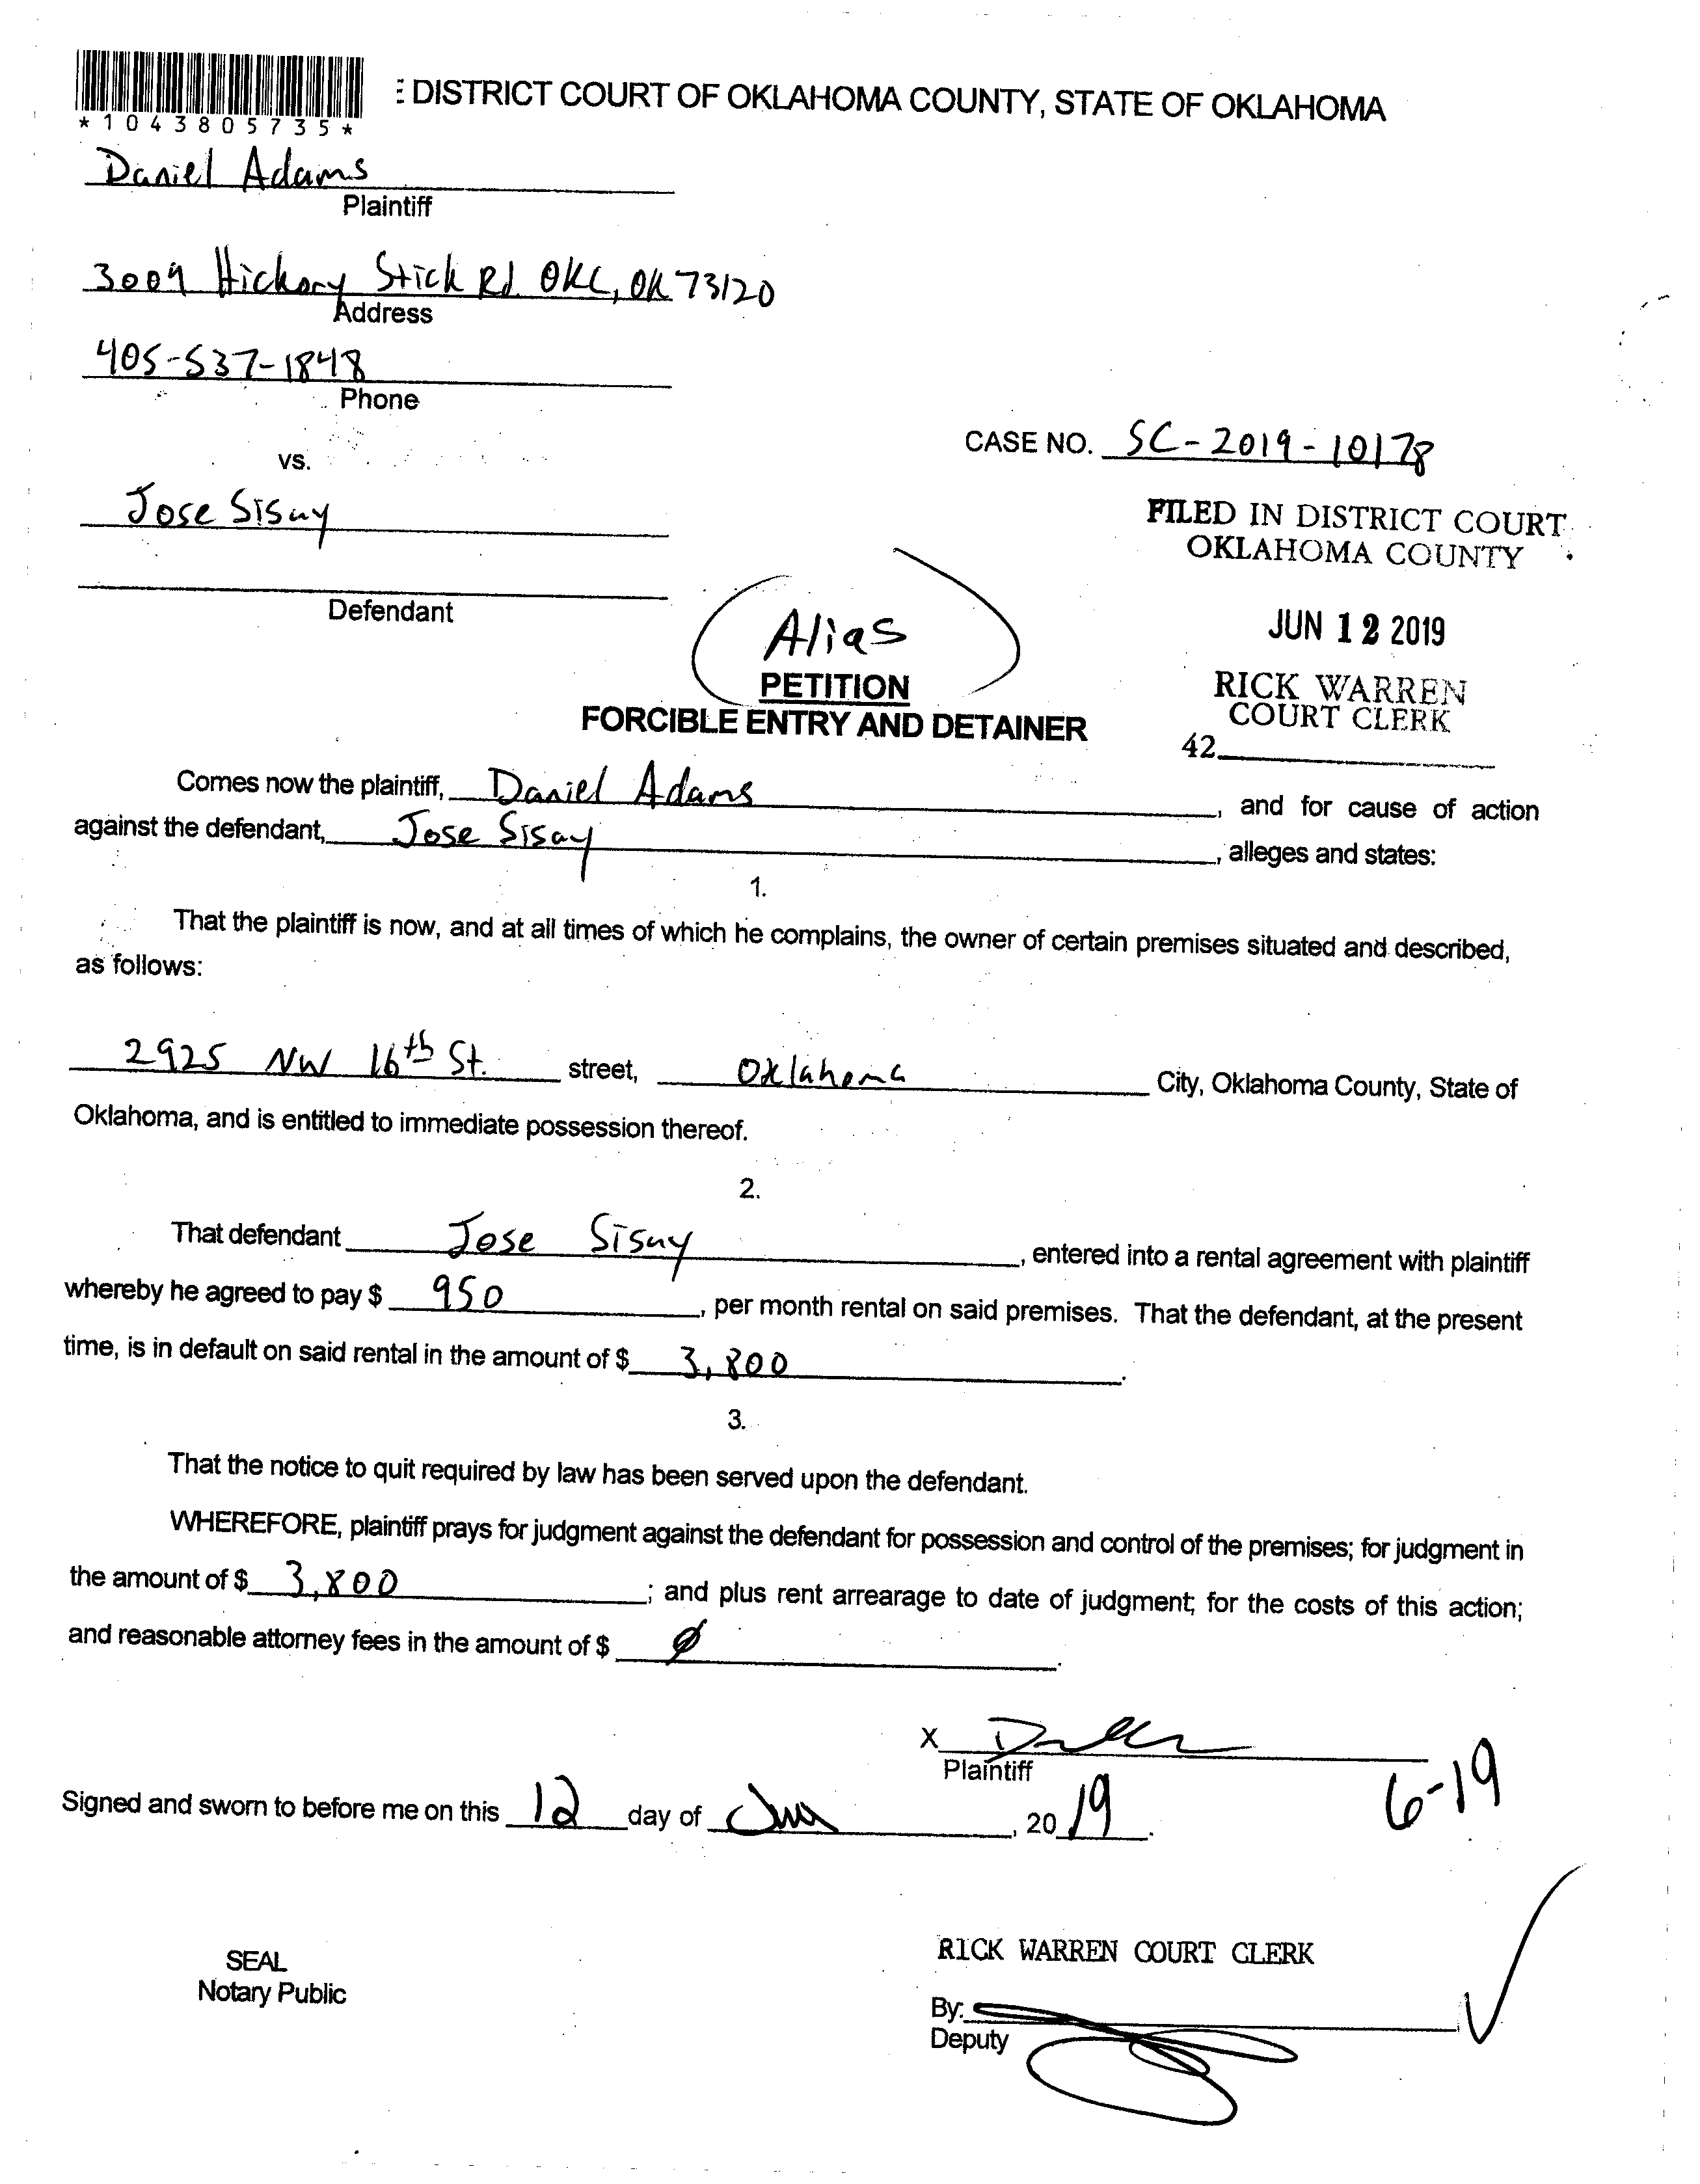 *1043805735*
E DISTRICT COURT OF OKLAHOMA COUNTY, STATE OF OKLAHOMA
Daniel Adams
Plaintiff
3009 Hickory Stick Rd. OKC, OK 73120
Address
405-537-1848
Phone
CASE NO. SC-2019-10178
vs.
Jose Sisay
FILED IN DISTRICT COURT
OKLAHOMA COUNTY
Defendant
JUN 12 2019
Alias
RICK WARREN
COURT CLERK
42
PETITION
FORCIBLE ENTRY AND DETAINER
Comes now the plaintiff, Daniel Adams, and for cause of action
against the defendant, Jose Sisay, alleges and states:
1.
That the plaintiff is now, and at all times of which he complains, the owner of certain premises situated and described,
as follows:
2925 NW 16th St. street, Oklahoma City, Oklahoma County, State of
Oklahoma, and is entitled to immediate possession thereof.
2.
That defendant Jose Sisay, entered into a rental agreement with plaintiff
whereby he agreed to pay $ 950, per month rental on said premises. That the defendant, at the present
time, is in default on said rental in the amount of $ 3,800.
3.
That the notice to quit required by law has been served upon the defendant.
WHEREFORE, plaintiff prays for judgment against the defendant for possession and control of the premises; for judgment in
the amount of $ 3,800; and plus rent arrearage to date of judgment; for the costs of this action;
and reasonable attorney fees in the amount of $ 0.
X
Plaintiff
6-19
Signed and sworn to before me on this 12 day of Jun, 2019.
SEAL
Notary Public
RICK WARREN COURT CLERK
By:
Deputy